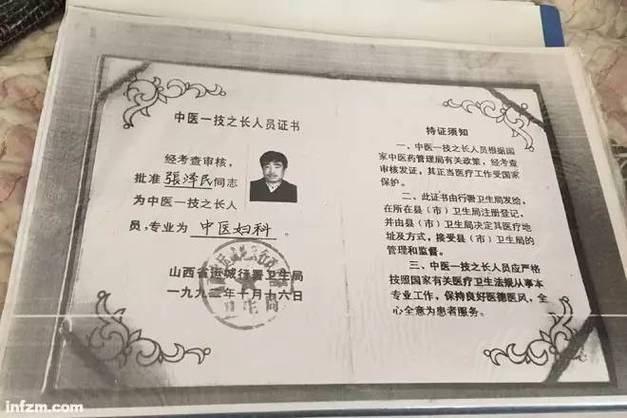 中医一技之长人员证书
经考查审核，
批准張泽民同志
为中医一技之长人
员，专业为 中医妇科。
山西省运城行署卫生局
一九九二年十月十六日
持证须知
一、中医一技之长人员根据国
家中医药管理局有关政策，经考查
审核发证，其正当医疗工作受国家
保护。
二、此证书由行署卫生局发给，
在所在县（市）卫生局注册登记，
并由县（市）卫生局决定其医疗地
址及方式，接受县（市）卫生局的
管理和监督。
三、中医一技之长人员应严格
按照国家有关医疗卫生法规从事本
专业工作，保持良好医德医风，全
心全意为患者服务。
infzm.com